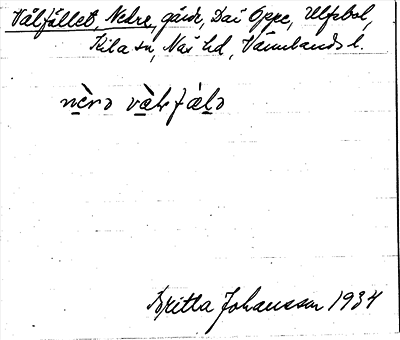 Välfället, Nedre, gårdr, Dal Oppe, Ulfsbol,
Kila sn, Näs hd, Värmlands l.
nèrə vätsfälə
Britta Johansson 1934